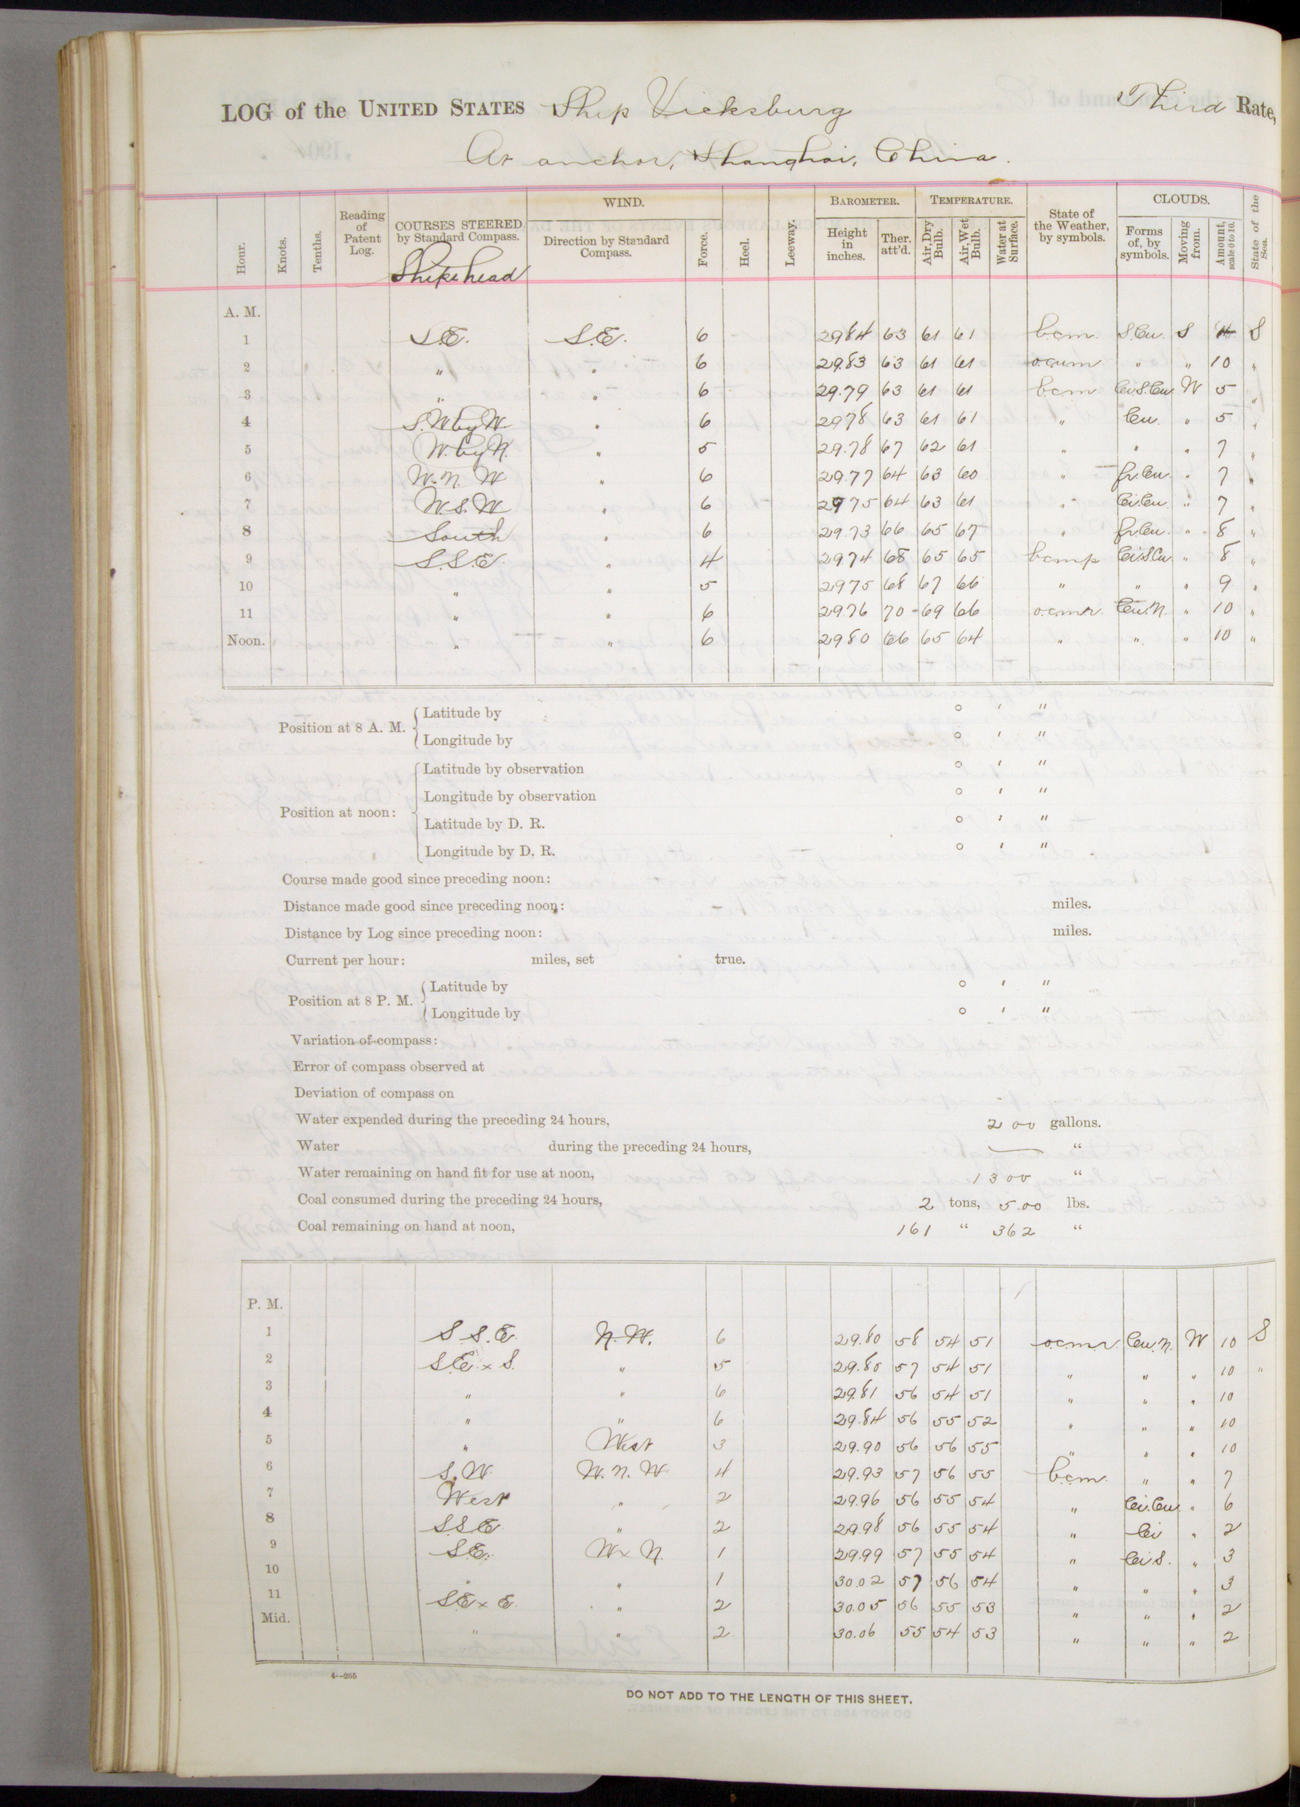 LOG of the UNITED STATES Ship Vicksburg Third Rate,
At anchor, Shanghai, China.
Hour. Knots. Tenths. Reading of Patent Log. COURSES STEERED by Standard Compass. WIND. Direction by Standard Compass. Force. Heel. Leeway. BAROMETER. Height in inches. Ther. att'd. TEMPERATURE. Air, Dry Bulb. Air, Wet Bulb. Water at Surface. State of the Weather, by symbols. CLOUDS. Forms of, by symbols. Moving from. Amount, scale 0 to 10. State of the Sea.
Ship's head
A. M.
1 S.E. S.E. 6 29 84 63 61 61 b.c.m. S.Cu. S 4 S
2 " " 6 29.83 63 61 61 " " 10 "
3 " " 6 29.79 63 61 61 bcm Ci.S.Cu W 5 "
4 S.W by W " 6 29 78 63 61 61 " Cu. " 5 "
5 W. by N. " 5 29.78 67 62 61 " " " 7 "
6 W. N. W " 6 29.77 64 63 60 " fr.Cu. " 7 "
7 W S. W " 6 29 75 64 63 61 " Ci.Cu. " 7 "
8 South " 6 29.73 66 65 67 " fr.Cu. " 8 "
9 S.S.E. " 4 29 74 68 65 65 bcmp Ci.S.Cu " 8 "
10 " " 5 29 75 68 67 66 " " " 9 "
11 " " 6 29 76 70 69 66 o.c.m.r. Cu.N. " 10 "
Noon. " " 6 29 80 66 65 64 " " " 10 "
Position at 8 A. M. { Latitude by ° ' "
Longitude by ° ' "
Position at noon: { Latitude by observation ° ' "
Longitude by observation ° ' "
Latitude by D. R. ° ' "
Longitude by D. R. ° ' "
Course made good since preceding noon:
Distance made good since preceding noon: miles.
Distance by Log since preceding noon: miles.
Current per hour: miles, set true.
Position at 8 P. M. { Latitude by ° ' "
Longitude by ° ' "
Variation of compass:
Error of compass observed at
Deviation of compass on
Water expended during the preceding 24 hours, 200 gallons.
Water during the preceding 24 hours, — "
Water remaining on hand fit for use at noon, 1300 "
Coal consumed during the preceding 24 hours, 2 tons, 500 lbs.
Coal remaining on hand at noon, 161 " 362 "
P. M.
1 S S. E. N. W. 6 29.80 58 54 51 o.c.m.r. Cu.N. W 10 S
2 S.E. x S. " 5 29.80 57 54 51 " " " 10 "
3 " " 6 29.81 56 54 51 " " " 10
4 " " 6 29.84 56 55 52 " " " 10
5 " West 3 29.90 56 56 55 " " " 10
6 S. W. W. N. W 4 29.93 57 56 55 b.c.m. " " 7
7 West " 2 29.96 56 55 54 " Ci.Cu " 6
8 S.S.E " 2 29.98 56 55 54 " Ci " 2
9 S.E. W x N. 1 29.99 57 55 54 " Ci.S. " 3
10 " " 1 30.02 57 56 54 " " " 3
11 S.E x E. " 2 30.05 56 55 53 " " " 2
Mid. " " 2 30.06 55 54 53 " " " 2
4—265
DO NOT ADD TO THE LENGTH OF THIS SHEET.